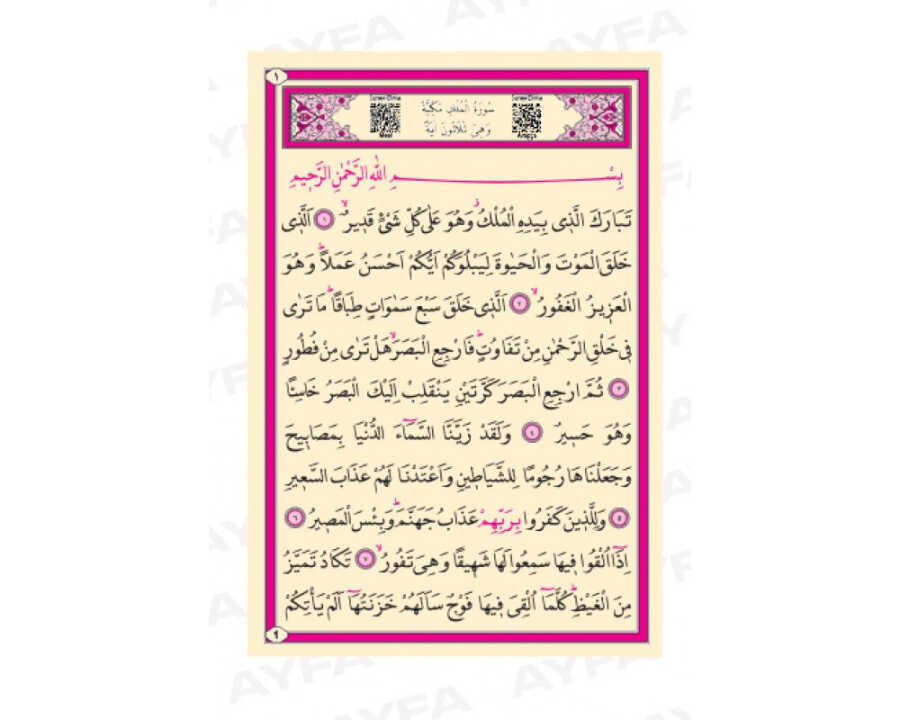 AYFA
١
سُورَةُ الْمُلْكِ مَكِّيَّةٌ
وَهِىَ ثَلٰثُونَ اٰيَةً
Meal
Arapça
بِسْمِ اللّٰهِ الرَّحْمٰنِ الرَّحِيمِ
تَبَارَكَ الَّذِى بِيَدِهِ الْمُلْكُ وَهُوَ عَلٰى كُلِّ شَىْءٍ قَدِيرٌۙ ١ اَلَّذِى
خَلَقَ الْمَوْتَ وَالْحَيٰوةَ لِيَبْلُوَكُمْ اَيُّكُمْ اَحْسَنُ عَمَلاًۜ وَهُوَ
الْعَزِيزُ الْغَفُورُۙ ٢ اَلَّذِى خَلَقَ سَبْعَ سَمٰوَاتٍ طِبَاقًاۜ مَا تَرٰى
فِى خَلْقِ الرَّحْمٰنِ مِنْ تَفَاوُتٍۜ فَارْجِعِ الْبَصَرَۙ هَلْ تَرٰى مِنْ فُطُورٍ
٣ ثُمَّ ارْجِعِ الْبَصَرَ كَرَّتَيْنِ يَنْقَلِبْ اِلَيْكَ الْبَصَرُ خَاسِئًا
وَهُوَ حَسِيرٌ ٤ وَلَقَدْ زَيَّنَّا السَّمَٓاءَ الدُّنْيَا بِمَصَابِيحَ
وَجَعَلْنَاهَا رُجُومًا لِلشَّيَاطِينِ وَاَعْتَدْنَا لَهُمْ عَذَابَ السَّعِيرِ
٥ وَلِلَّذِينَ كَفَرُوا بِرَبِّهِمْ عَذَابُ جَهَنَّمَۜ وَبِئْسَ الْمَصِيرُ ٦
اِذَٓا اُلْقُوا فِيهَا سَمِعُوا لَهَا شَهِيقًا وَهِىَ تَفُورُۙ ٧ تَكَادُ تَمَيَّزُ
مِنَ الْغَيْظِۜ كُلَّمَٓا اُلْقِىَ فِيهَا فَوْجٌ سَاَلَهُمْ خَزَنَتُهَٓا اَلَمْ يَأْتِكُمْ